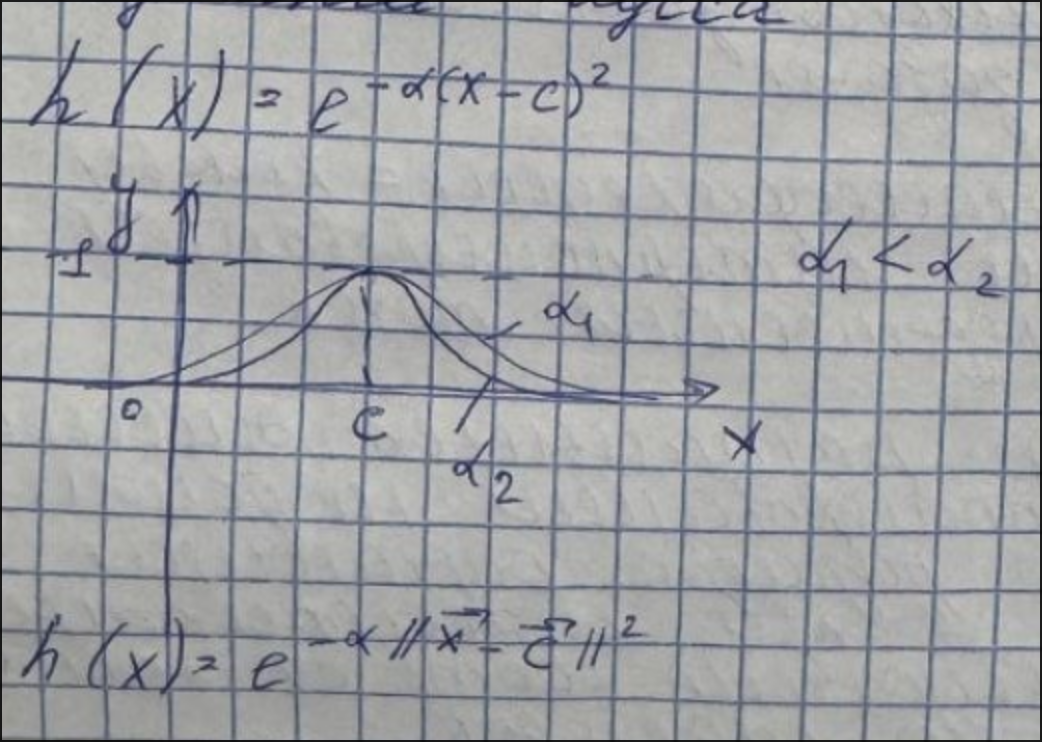 h(x) = e^{-α(x-c)^2}
y
1
α₁ < α₂
α₁
0
c
x
α₂
h(x) = e^{-α||\vec{x}-\vec{c}||^2}